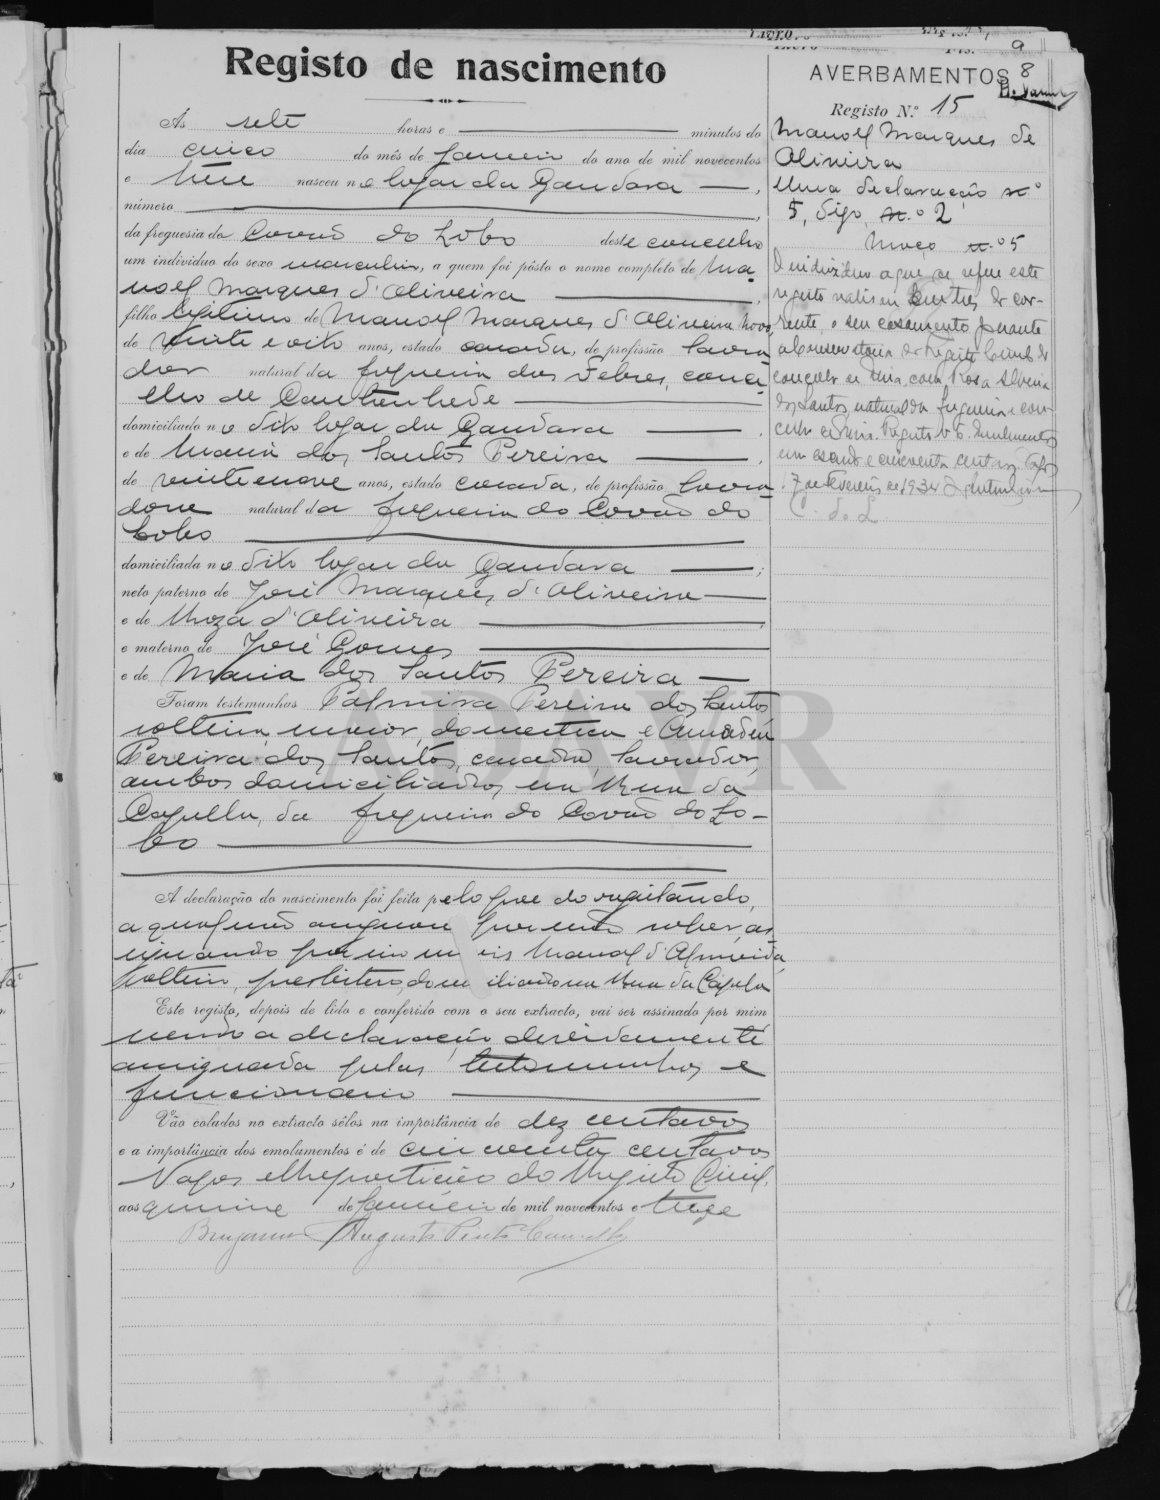 9
Registo de nascimento
AVERBAMENTOS 8
Registo N.º 15
Às sete horas e minutos do
dia cinco do mês de Janeiro do ano de mil novecentos
e treze nasceu no logar da Gandara
número
da freguesia do Covão do Lobo deste concelho
um indivíduo do sexo masculino, a quem foi pôsto o nome completo de Ma
noel Marques d'Oliveira
filho legitimo de Manoel Marques d'Oliveira novo,
de vinte e oito anos, estado casado, de profissão lavra
dor natural da freguesia das Febres, conce
lho de Cantanhede
domiciliado no dito logar da Gandara
e de Maria dos Santos Pereira
de vinte e nove anos, estado casada, de profissão lavra
dora natural da freguesia do Covão do
Lobo
domiciliada no dito logar da Gandara
neto paterno de José Marques d'Oliveira
e de Roza d'Oliveira
e materno de José Gomes
e de Maria dos Santos Pereira
Foram testemunhas Palmira Pereira dos Santos
solteira, maior, domestica e Amadeu
Pereira dos Santos, casado, lavrador,
ambos domiciliados na Rua da
Capella, da freguesia do Covão do Lo-
bo
A declaração do nascimento foi feita pelo pae do registando,
a qual não assignou por não saber, as
signando por Manoel d'Almeida,
solteiro, presbitero, domiciliado na Rua da Capela
Este registo, depois de lido e conferido com o seu extracto, vai ser assinado por mim
sendo a declaração devidamente
assignada pelas testemunhas e
funcionario
Vão colados no extracto sêlos na importância de dez centavos
e a importância dos emolumentos é de cincoenta centavos
Vagos e Repartição do Registo Civil,
aos quinze de Janeiro de mil novecentos e treze
Augusto Pinto
Manoel Marques de
Oliveira
Uma declaração n.º
5, digo, n.º 2
Maço n.º 5
O individuo a que se refere este
registo realisou em tres do cor-
rente, o seu casamento perante
a Conservatoria do Registo Civil do
concelho de Mira, com Rosa
dos Santos, natural da freguesia e con-
celho de Mira. Registo n.º 6. Emolumentos
um escudo e cincoenta centavos. Vagos
7 de Fevereiro de 1934
C. do L.
ADAVR